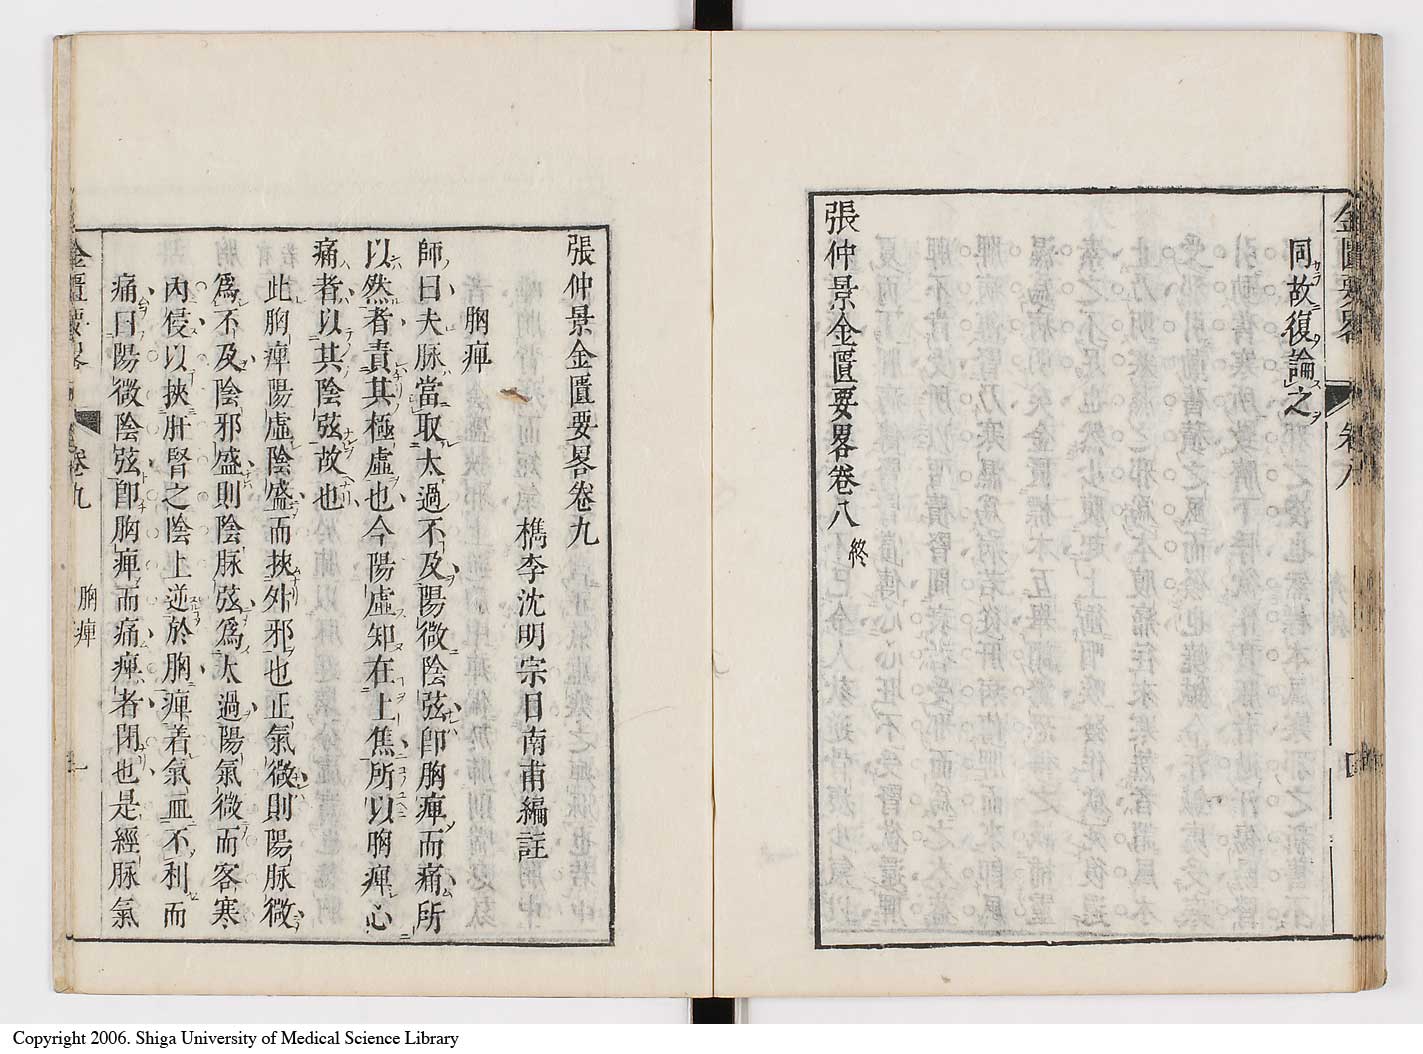 金匱要畧
卷八
同故復論之
張仲景金匱要畧卷八終
張仲景金匱要畧卷九
檇李沈明宗目南甫編註
胸痺
師曰夫脉當取太過不及陽微陰弦卽胸痺而痛所
以然者責其極虛也今陽虛知在上焦所以胸痺心
痛者以其陰弦故也
此胸痺陽虛陰盛而挾外邪也正氣微則陽脉微
爲不及陰邪盛則陰脉弦爲太過陽氣微而客寒
內侵以挾肝腎之陰上逆於胸痺着氣血不利而
痛曰陽微陰弦卽胸痺而痛痺者閉也是經脉氣
金匱要畧
卷九
胸痺
一
Copyright 2006. Shiga University of Medical Science Library